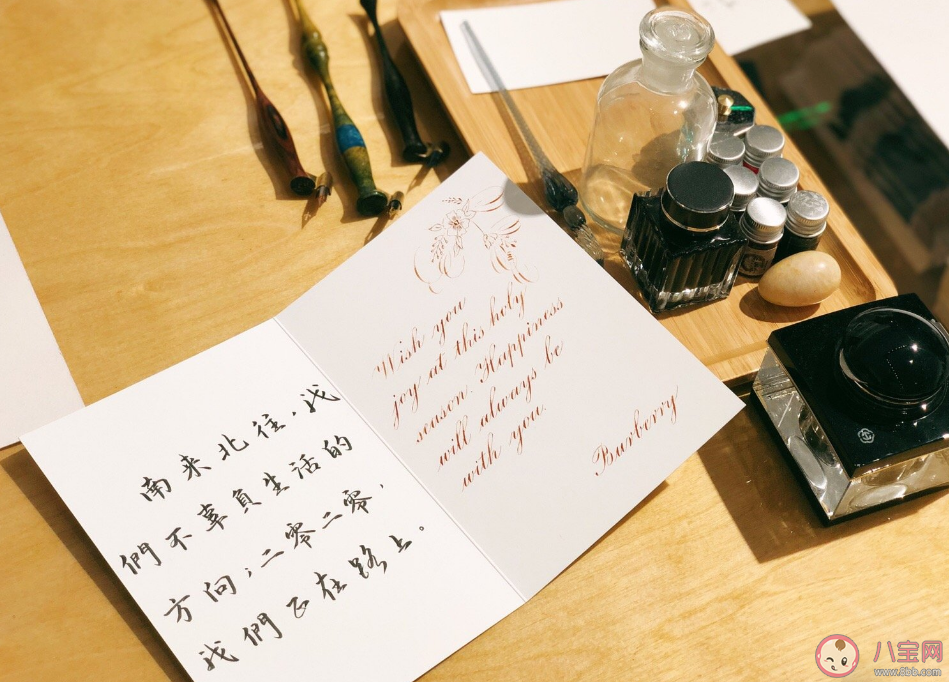 南来北往，我
們不辜負生活的
方向；二零二零，
我們正在路上。
Wish you
joy at this holy
season. Happiness
will always be
with you.
Burberry
八宝网
www.8bb.com